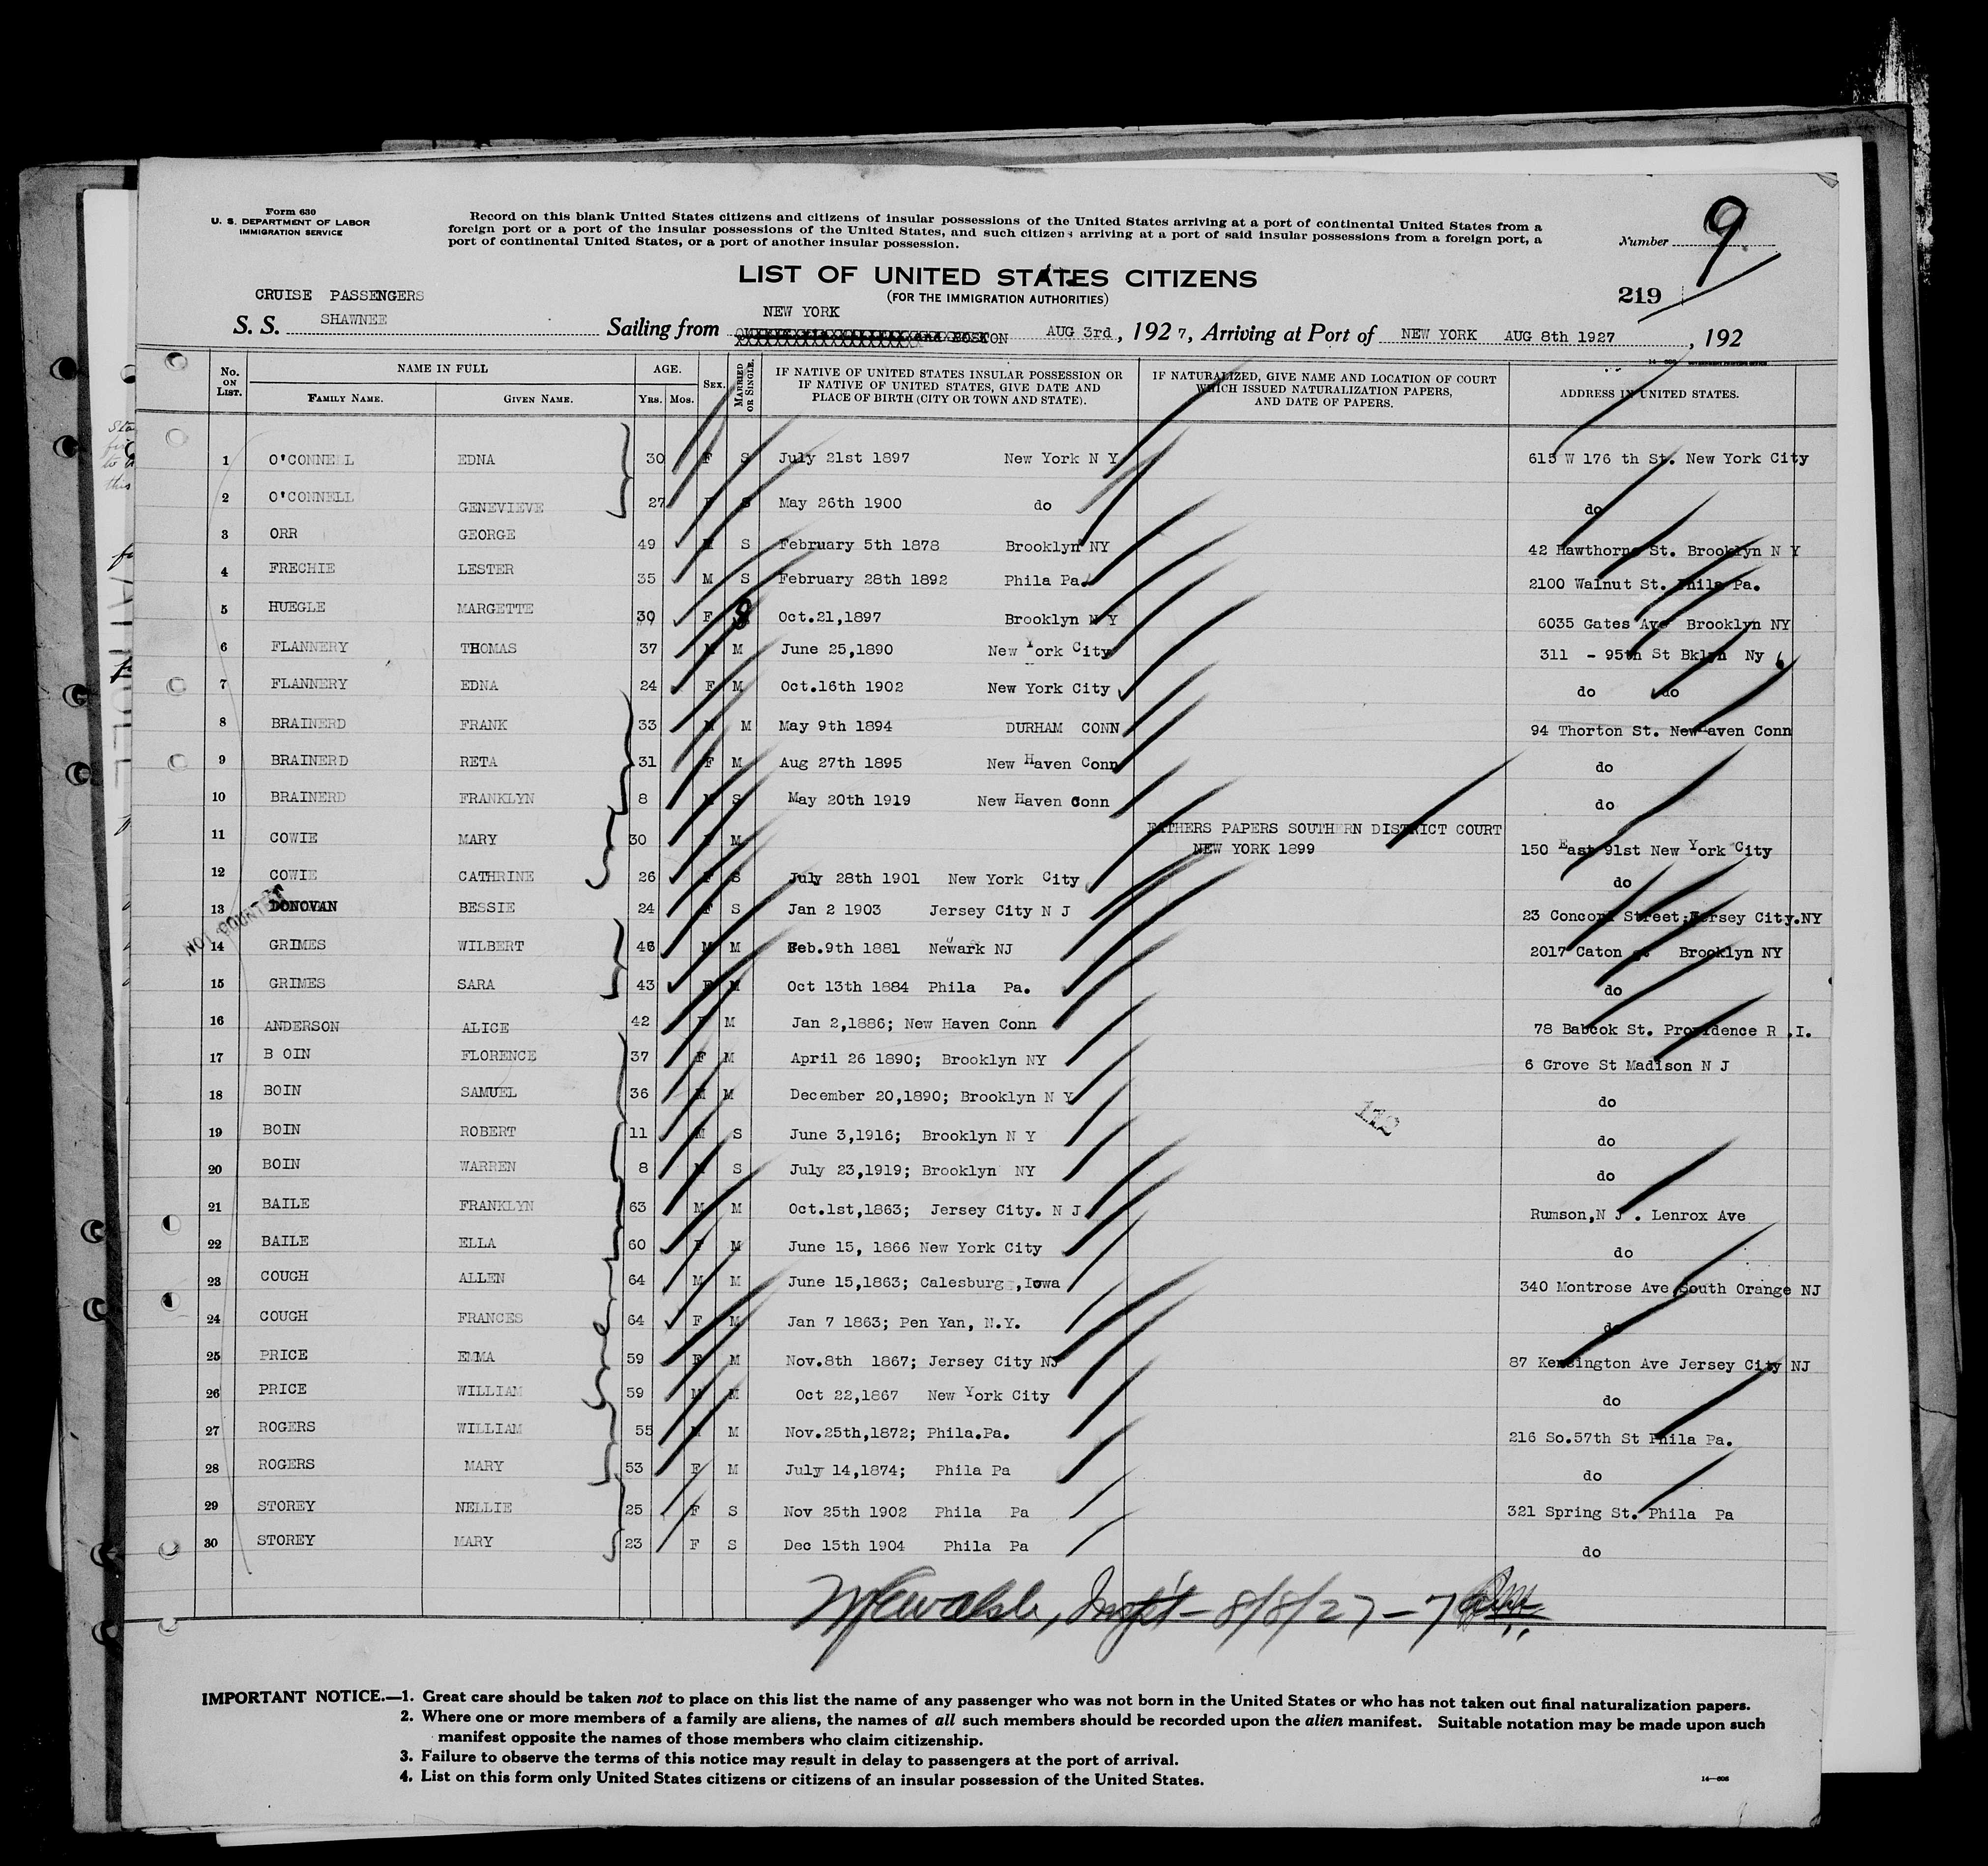 Form 630
U. S. DEPARTMENT OF LABOR
IMMIGRATION SERVICE
Record on this blank United States citizens and citizens of insular possessions of the United States arriving at a port of continental United States from a
foreign port or a port of the insular possessions of the United States, and such citizens arriving at a port of said insular possessions from a foreign port, a
port of continental United States, or a port of another insular possession.
Number 9
219
LIST OF UNITED STATES CITIZENS
(FOR THE IMMIGRATION AUTHORITIES)
CRUISE PASSENGERS
NEW YORK
S. S. SHAWNEE Sailing from BOSTON AUG 3rd, 192 7, Arriving at Port of NEW YORK AUG 8th 1927, 192
No. ON LIST. NAME IN FULL FAMILY NAME. GIVEN NAME. AGE. YRS. MOS. SEX. MARRIED OR SINGLE. IF NATIVE OF UNITED STATES INSULAR POSSESSION OR IF NATIVE OF UNITED STATES, GIVE DATE AND PLACE OF BIRTH (CITY OR TOWN AND STATE). IF NATURALIZED, GIVE NAME AND LOCATION OF COURT WHICH ISSUED NATURALIZATION PAPERS, AND DATE OF PAPERS. ADDRESS IN UNITED STATES.
1 O'CONNELL EDNA 30 F S July 21st 1897 New York N Y 615 W 176 th St. New York City
2 O'CONNELL GENEVIEVE 27 F S May 26th 1900 do do
3 ORR GEORGE 49 M S February 5th 1878 Brooklyn NY 42 Hawthorne St. Brooklyn N Y
4 FRECHIE LESTER 35 M S February 28th 1892 Phila Pa. 2100 Walnut St. Phila Pa.
5 HUEGLE MARGETTE 30 F S Oct.21,1897 Brooklyn N Y 6035 Gates Ave Brooklyn NY
6 FLANNERY THOMAS 37 M M June 25,1890 New York City 311 - 95th St Bklyn Ny
7 FLANNERY EDNA 24 F M Oct.16th 1902 New York City do do
8 BRAINERD FRANK 33 M M May 9th 1894 DURHAM CONN 94 Thorton St. New Haven Conn
9 BRAINERD RETA 31 F M Aug 27th 1895 New Haven Conn do
10 BRAINERD FRANKLYN 8 M S May 20th 1919 New Haven Conn do
11 COWIE MARY 30 F M FATHERS PAPERS SOUTHERN DISTRICT COURT NEW YORK 1899 150 East 91st New York City
12 COWIE CATHRINE 26 F S July 28th 1901 New York City do
13 DONOVAN BESSIE 24 F S Jan 2 1903 Jersey City N J 23 Concord Street;Jersey City.NY
NOT COUNTED
14 GRIMES WILBERT 46 M M Feb.9th 1881 Newark NJ 2017 Caton st Brooklyn NY
15 GRIMES SARA 43 F M Oct 13th 1884 Phila Pa. do
16 ANDERSON ALICE 42 F M Jan 2,1886; New Haven Conn 78 Babcok St. Providence R .I.
17 B OIN FLORENCE 37 F M April 26 1890; Brooklyn NY 6 Grove St Madison N J
18 BOIN SAMUEL 36 M M December 20,1890; Brooklyn N Y do
19 BOIN ROBERT 11 M S June 3,1916; Brooklyn N Y do
112
20 BOIN WARREN 8 M S July 23,1919; Brooklyn NY do
21 BAILE FRANKLYN 63 M M Oct.1st,1863; Jersey City. N J Rumson,N J . Lenrox Ave
22 BAILE ELLA 60 F M June 15, 1866 New York City do
23 COUGH ALLEN 64 M M June 15,1863; Calesburg ,Iowa 340 Montrose Ave South Orange NJ
24 COUGH FRANCES 64 F M Jan 7 1863; Pen Yan, N.Y. do
25 PRICE EMMA 59 F M Nov.8th 1867; Jersey City NJ 87 Kensington Ave Jersey City NJ
26 PRICE WILLIAM 59 M M Oct 22,1867 New York City do
27 ROGERS WILLIAM 55 M M Nov.25th,1872; Phila.Pa. 216 So.57th St Phila Pa.
28 ROGERS MARY 53 F M July 14,1874; Phila Pa do
29 STOREY NELLIE 25 F S Nov 25th 1902 Phila Pa 321 Spring St. Phila Pa
30 STOREY MARY 23 F S Dec 15th 1904 Phila Pa do
Insp't - 8/8/27 - 7
IMPORTANT NOTICE.—1. Great care should be taken not to place on this list the name of any passenger who was not born in the United States or who has not taken out final naturalization papers.
2. Where one or more members of a family are aliens, the names of all such members should be recorded upon the alien manifest. Suitable notation may be made upon such
manifest opposite the names of those members who claim citizenship.
3. Failure to observe the terms of this notice may result in delay to passengers at the port of arrival.
4. List on this form only United States citizens or citizens of an insular possession of the United States.
14—606